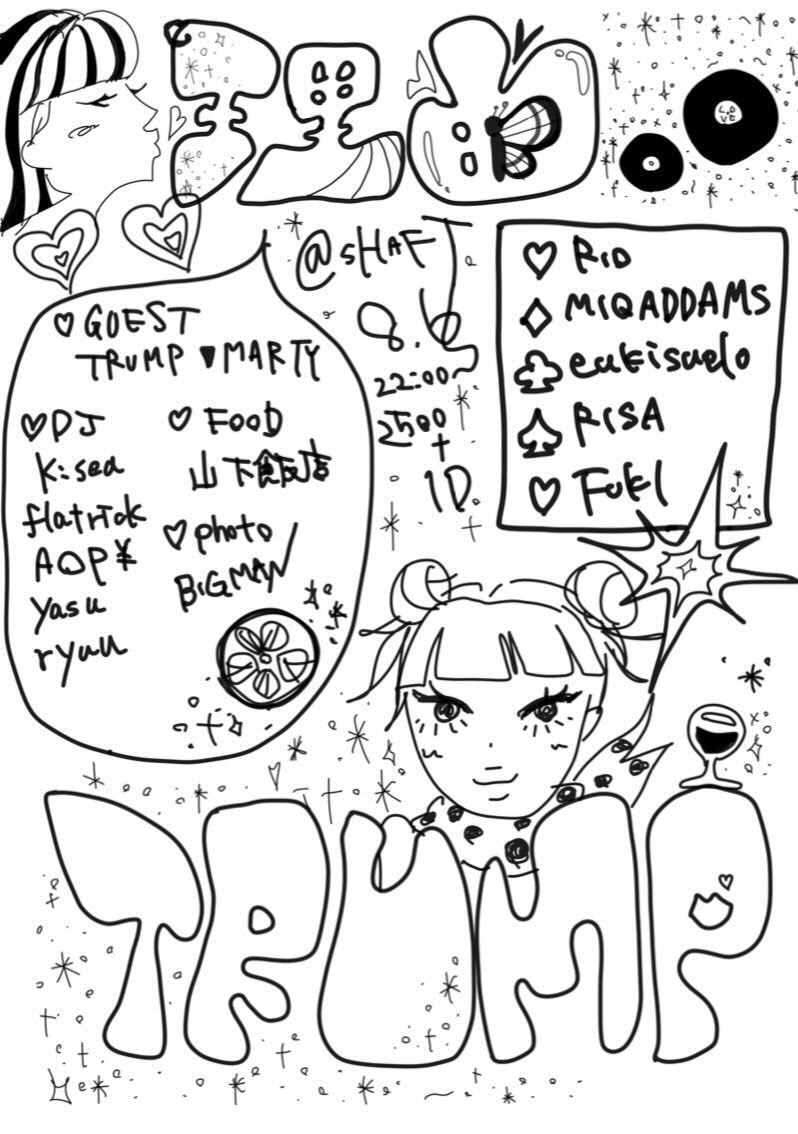 LOVE
@SHAFT
8.6
22:00~
2500
+
1D
♡ RIO
♢ MIQADDAMS
♤ RISA
♡ FUKI
♡ GUEST
TRUMP ▼MARTY
♡ DJ
Kisea
flatrick
AOP¥
yasu
ryuu
♡ FOOD
山下飯店
♡ photo
BIGMAN
TRUMP